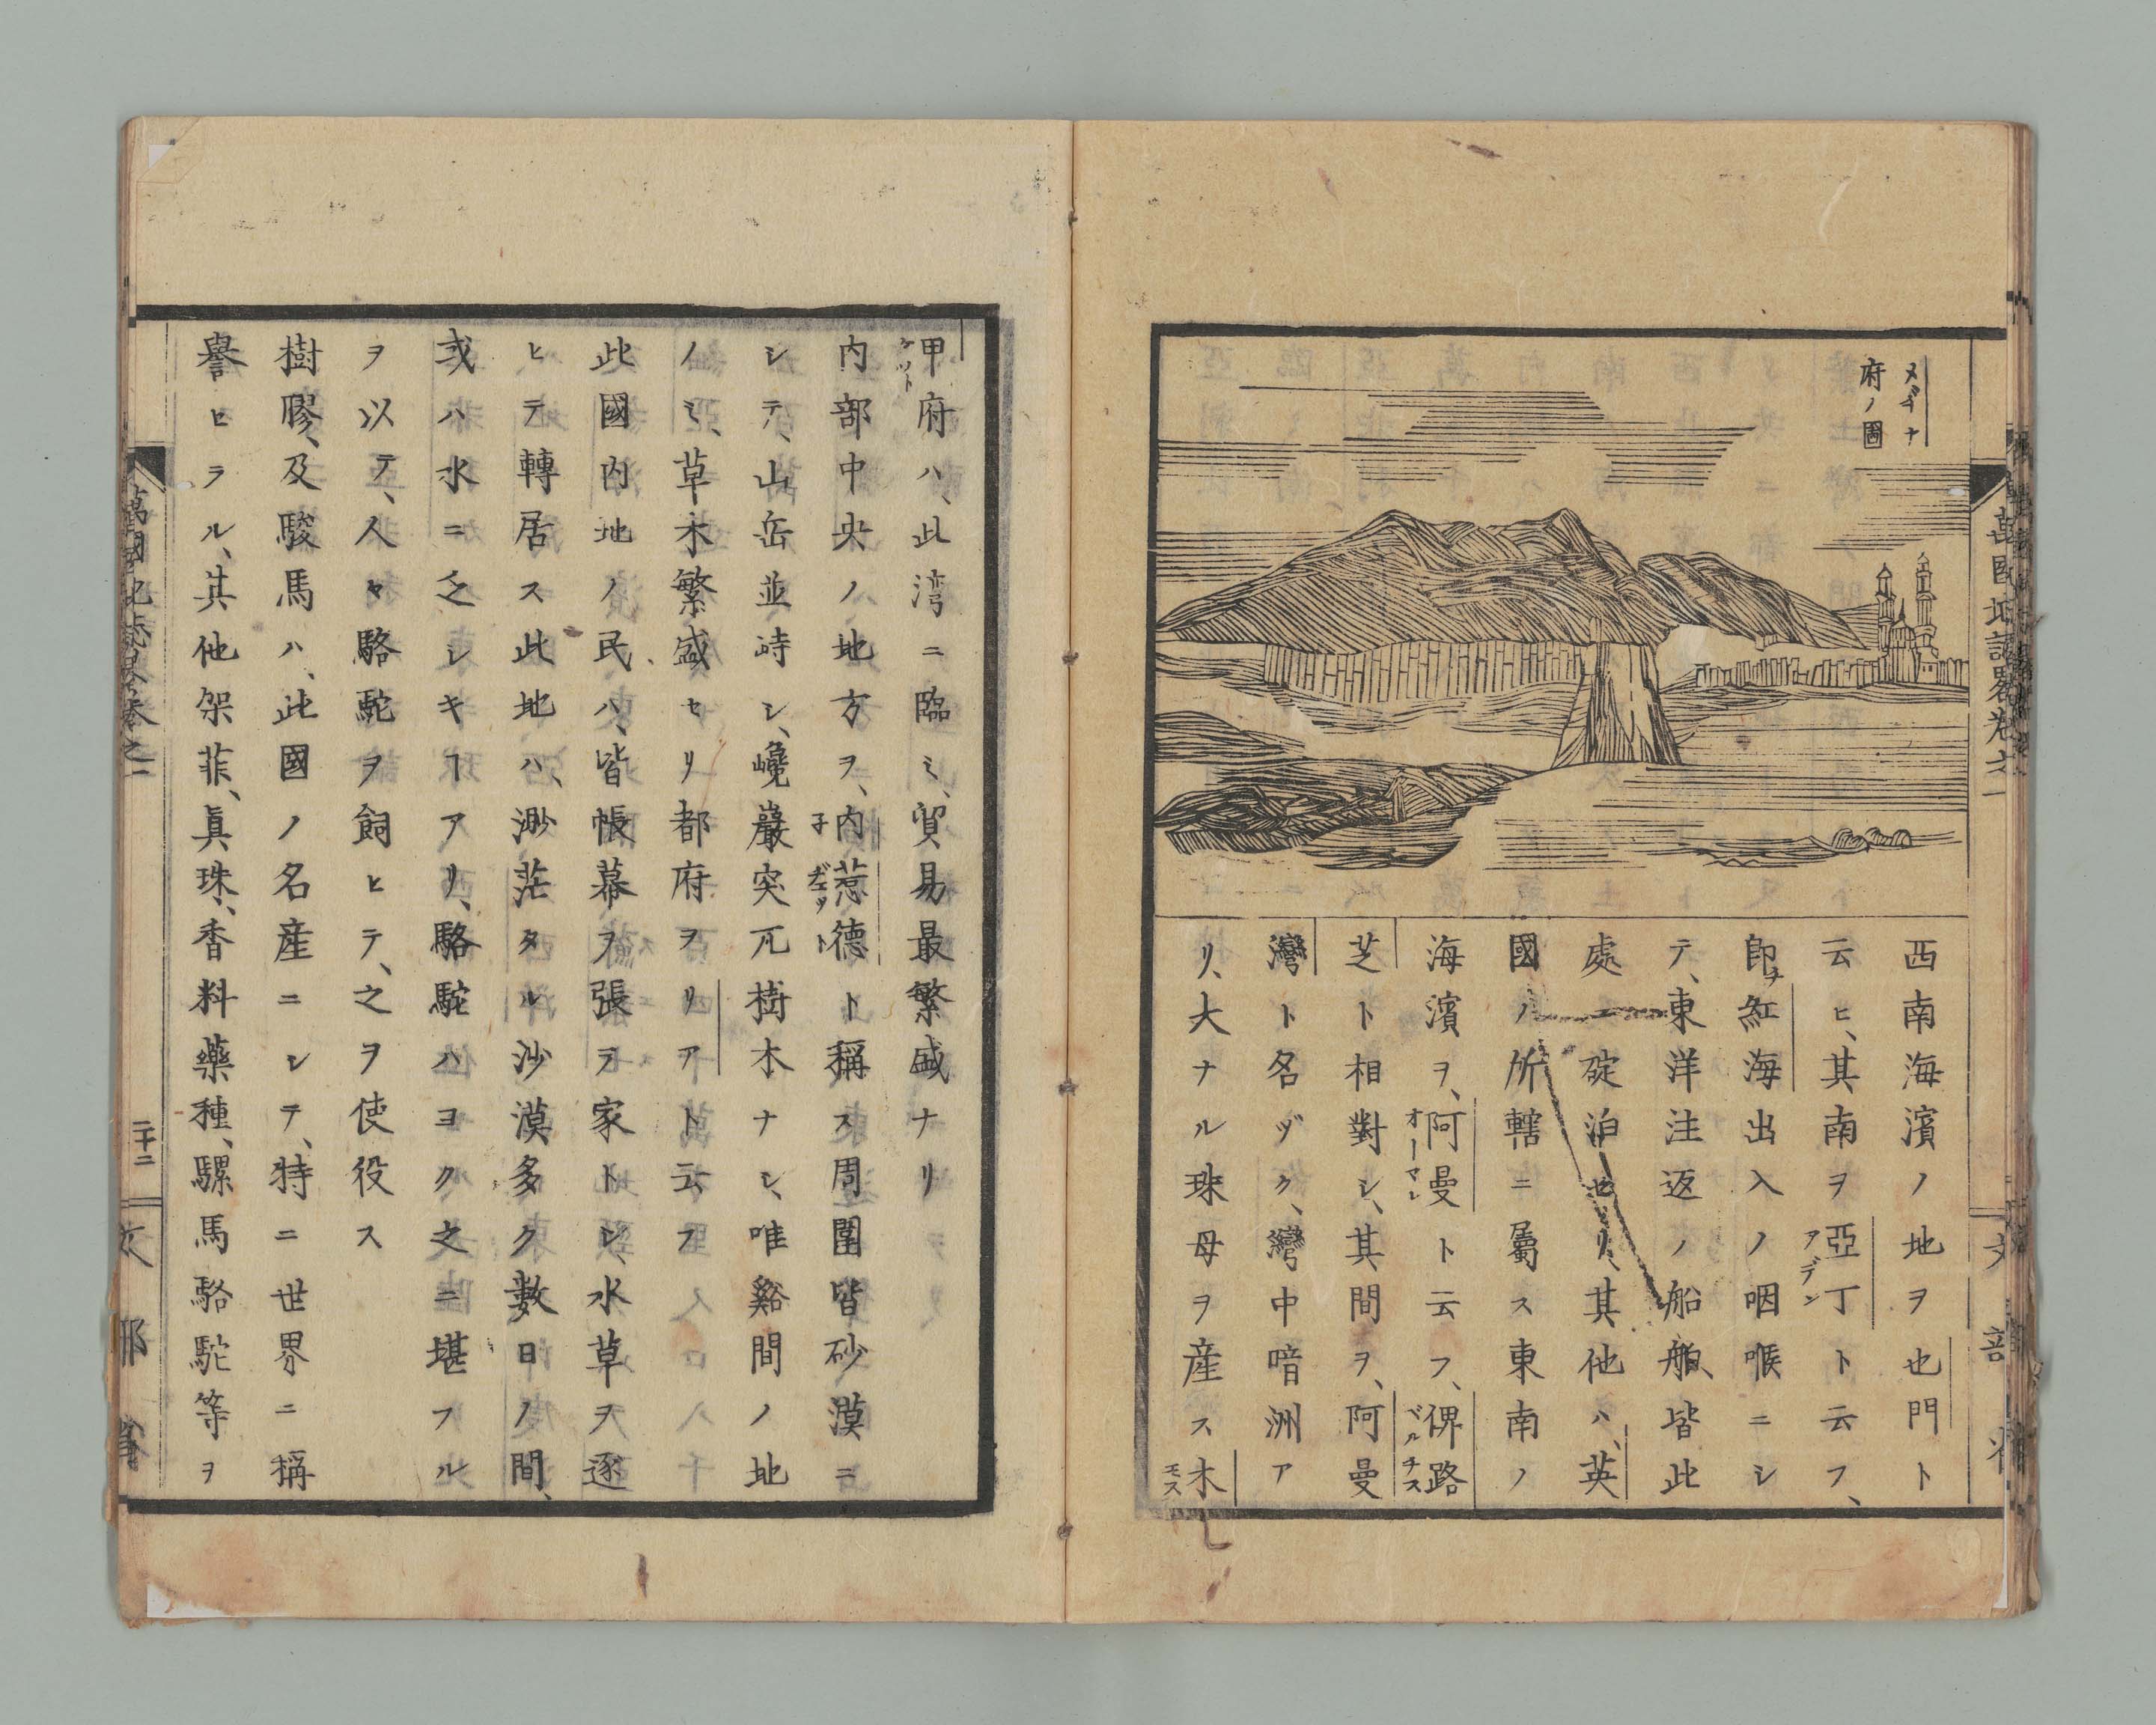 メヂナ
府ノ圖
西南海濱ノ地ヲ也門ト
云ヒ、其南ヲ亞丁ト云フ、
アデン
即チ紅海出入ノ咽喉ニシ
テ、東洋注返ノ船舶、皆此
處ニ碇泊セリ、其他ハ、英
國ノ所轄ニ屬ス東南ノ
海濱ヲ、阿曼ト云フ、俾路
オーマン
ベルチス
芝ト相對シ、其間ヲ、阿曼
灣ト名ヅク、灣中喑洲ア
リ、大ナル珠母ヲ産ス木
モス
甲府ハ、此湾ニ臨ミ、貿易最繁盛ナリ
ケット
内部中央ノ地方ヲ、内惹德ト稱ス周圍皆砂漠ニ
子ヂェット
シテ、山岳並峙シ、巉巖突兀樹木ナシ、唯谿間ノ地
ノミ、草木繁盛セリ都府ヲリアト云フ
此國内地ノ民ハ、皆帳幕ヲ張テ家トシ、水草ヲ逐
ヒテ轉居ス此地ハ、渺茫タル沙漠多ク數日ノ間、
或ハ水ニ乏シキヿアリ、駱駝ハヨク之ニ堪フル
ヲ以テ、人々駱駝ヲ飼ヒテ、之ヲ使役ス
樹膠、及駿馬ハ、此國ノ名産ニシテ、特ニ世界ニ稱
譽ヒラル、其他架菲、眞珠、香料藥種、騾馬駱駝等ヲ
萬國地誌畧卷之二
二十二
文部省